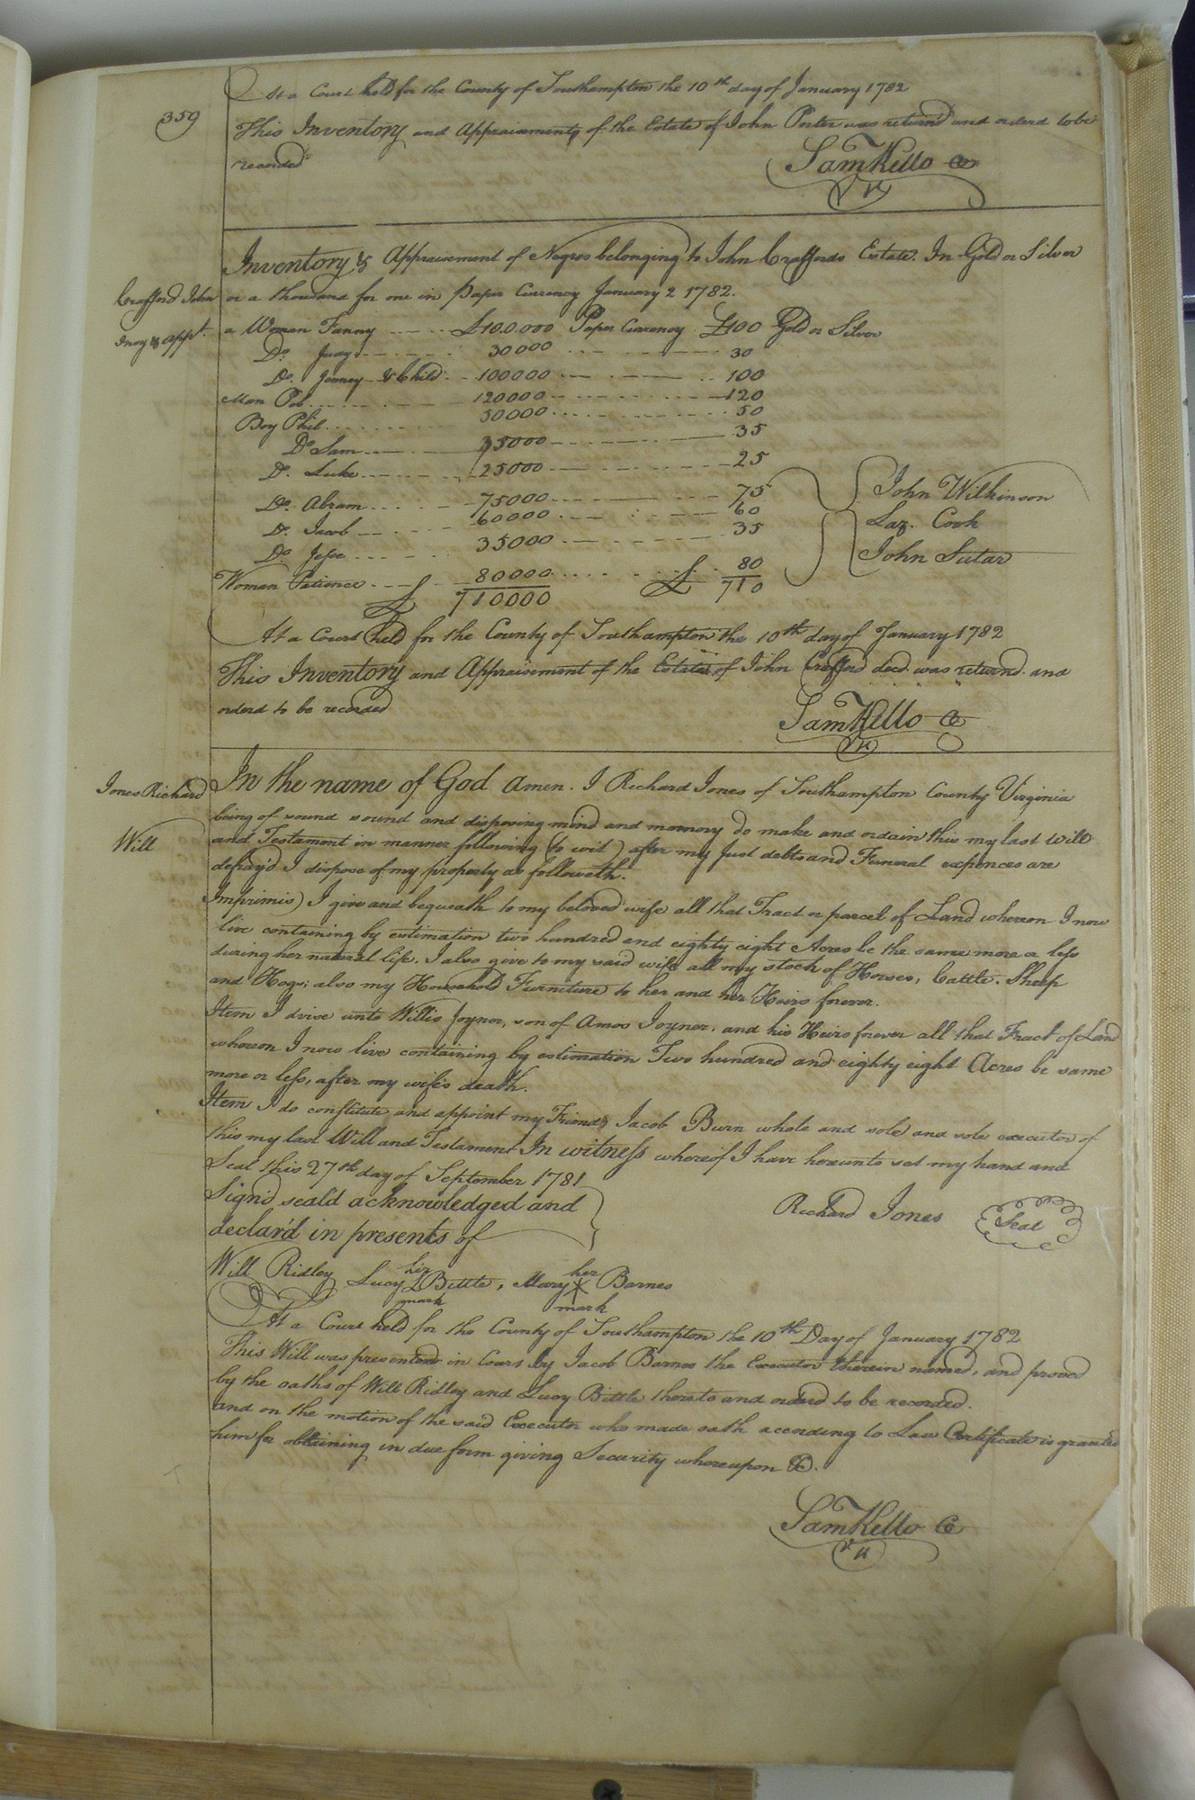 359
At a Court held for the County of Southampton the 10th day of January 1782
This Inventory and Appraisement of the Estate of John Porter was return'd and orderd to be
recorded
Sam Kello Cs
Crafford John
Invy & appt.
Inventory & Appraisement of Negros belonging to John Craffords Estate. In Gold or Silver
or a thousand for one in Paper Currency January 2 1782.
a Woman Fanny £100.000 Paper Currency £100 Gold or Silver
Do. Judy 30000 30
Do. Jenney & Child 100000 100
Man Pob 120000 120
Boy Phil 50000 50
Do Sam 35000 35
Do. Luke 25000 25
Do. Abram 75000 75
Do. Jacob 60000 60
Do Jesse 35000 35
Woman Patience £ 80000 £ 80
£ 710000 £ 710
John Wilkinson
Laz. Cook
John Sutar
At a Court held for the County of Southampton the 10th day of January 1782
This Inventory and Appraisement of the Estate of John Crafford decd. was returnd and
orderd to be recorded
Sam Kello Cs
Jones Richard
Will
In the name of God Amen. I Richard Jones of Southampton County Virginia
being of sound sound and disposing mind and memory do make and ordain this my last will
and Testament in manner following (to wit) after my Just debts and Funeral expences are
defray'd I dispose of my property as followeth.
Imprimis) I give and bequeath to my beloved wife all that Tract or parcel of Land whereon I now
live containing by estimation two hundred and eighty eight Acres be the same more or less
during her natural life. I also give to my said wife all my stock of Horses, Cattle. Sheep
and Hogs; also my Household Furniture to her and her Heirs forever.
Item I devise unto Willis Joyner, son of Amos Joyner, and his Heirs forever all that Tract of Land
whereon I now live containing by estimation Two hundred and eighty eight Acres be same
more or less, after my wife's death.
Item I do constitute and appoint my Friends Jacob Burn whole and sole and sole executor of
this my last Will and Testament In witness whereof I have hereunto set my hand and
Seal this 27th day of September 1781
Sign'd seal'd acknowledged and
declar'd in presents of
Richard Jones Seal
Will Ridley Lucy her mark Bittle, Mary her X mark Barnes
At a Court held for the County of Southampton the 10th Day of January 1782
This Will was presented in Court by Jacob Barnes the Executor therein named, and proved
by the oaths of Will Ridley and Lucy Bittle thereto and orderd to be recorded.
and on the motion of the said Executor who made oath according to Law Certificate is granted
him for obtaining in due form giving Security whereupon &c.
Sam Kello Cs